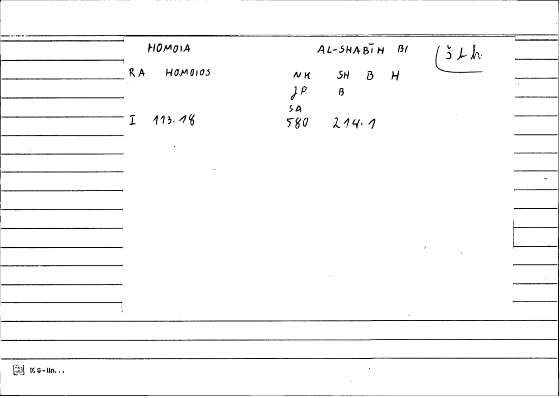 HOMOIA AL-SHABĪH BI šbh
RA HOMOIOS NH SH B H
JP B
SA
I 113.18 580 214.1